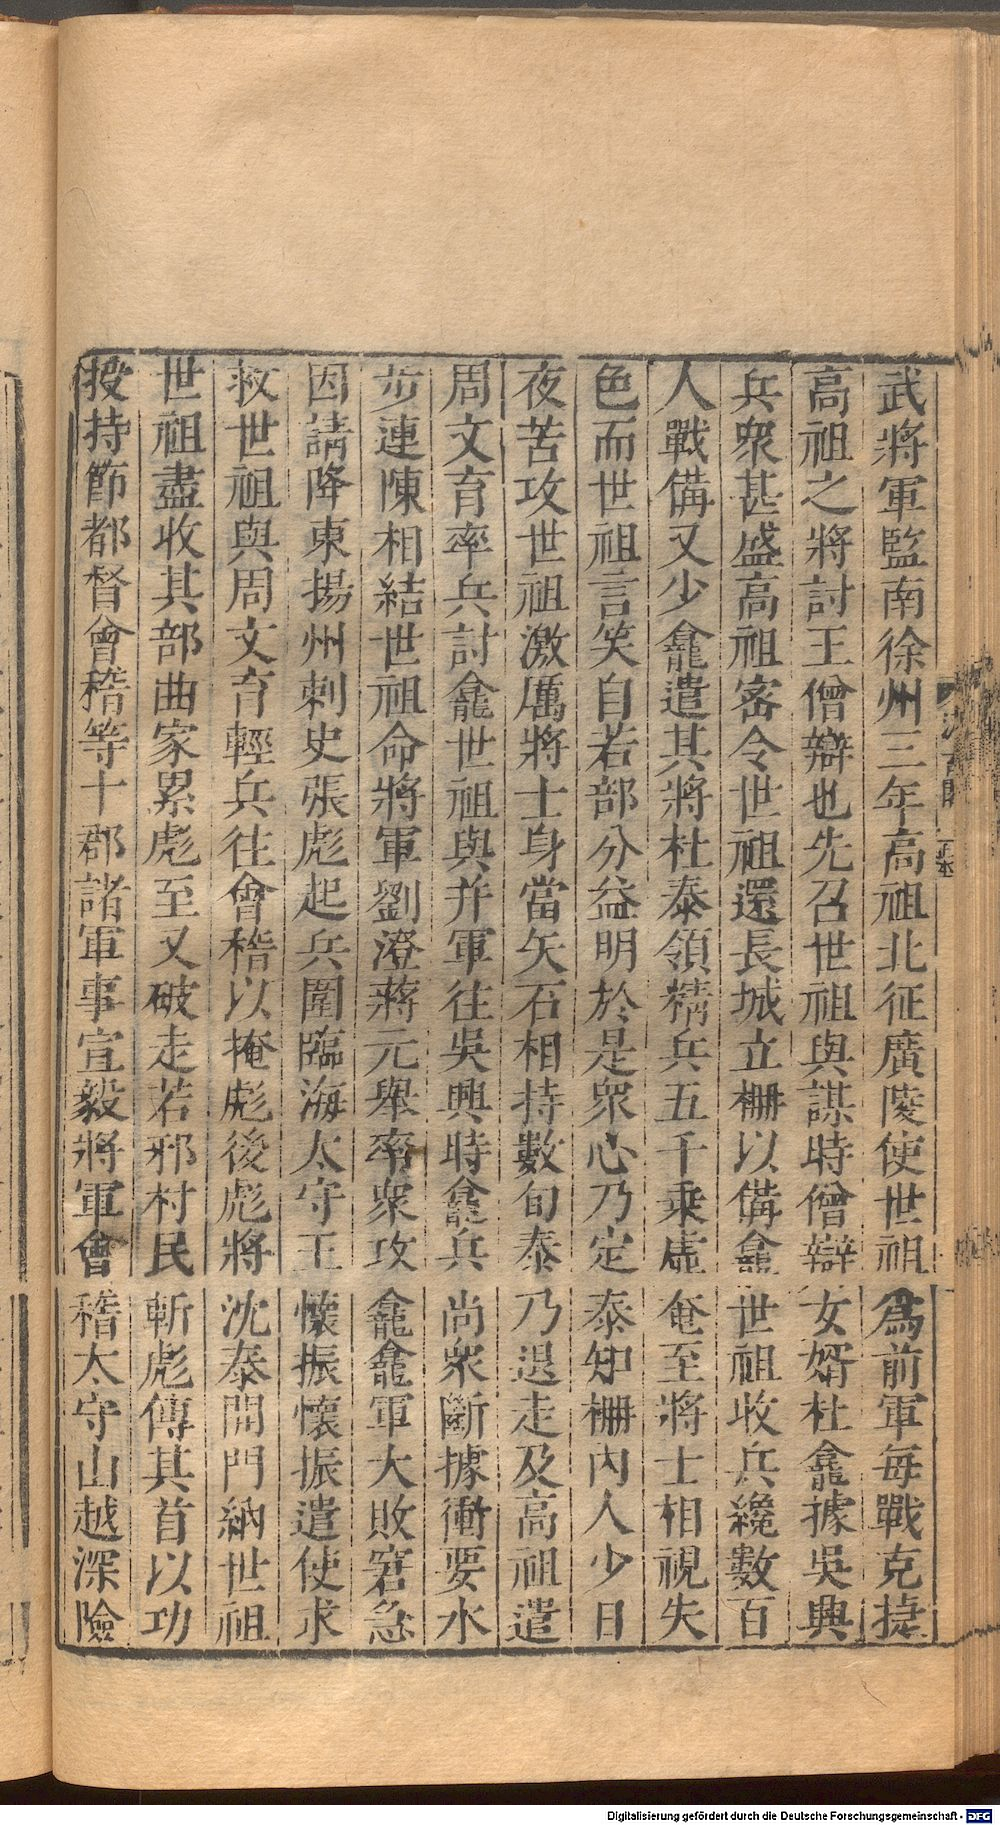 武將軍監南徐州三年高祖北征廣陵使世祖爲前軍每戰克捷
高祖之將討王僧辯也先召世祖與謀時僧辯女婿杜龕據吳興
兵衆甚盛高祖密令世祖還長城立柵以備龕世祖收兵纔數百
人戰備又少龕遣其將杜泰領精兵五千乘虛奄至將士相視失
色而世祖言笑自若部分益明於是衆心乃定泰知柵內人少日
夜苦攻世祖激厲將士身當矢石相持數旬泰乃退走及高祖遣
周文育率兵討龕世祖與并軍往吳興時龕兵尚衆斷據衝要水
步連陳相結世祖命將軍劉澄蔣元舉率衆攻龕龕軍大敗窘急
因請降東揚州刺史張彪起兵圍臨海太守王懷振懷振遣使求
救世祖與周文育輕兵往會稽以掩彪後彪將沈泰開門納世祖
世祖盡收其部曲家累彪至又破走若邪村民斬彪傳其首以功
授持節都督會稽等十郡諸軍事宣毅將軍會稽太守山越深險
Digitalisierung gefördert durch die Deutsche Forschungsgemeinschaft - DFG